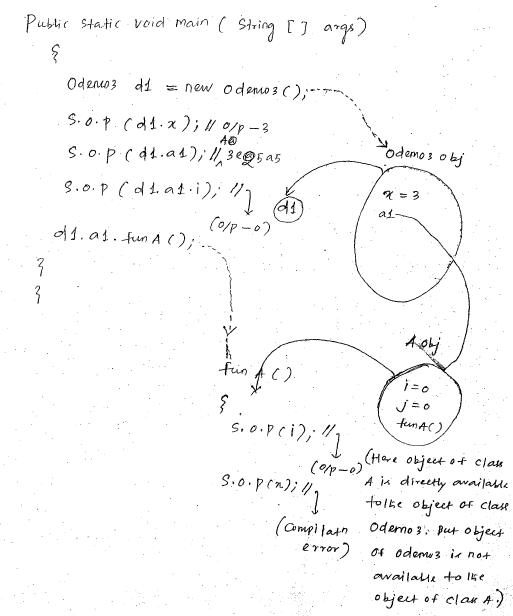 Public static void main ( String [ ] args)
{
Odemo3 d1 = new Odemo3();
S.o.p (d1.x); // o/p – 3
S.o.p (d1.a1); // A@3e25a5
S.o.p (d1.a1.i); //
(o/p – 0)
d1.a1.funA();
}
}
Odemo3 obj
x = 3
a1
d1
A obj
i=0
j=0
funA()
fun A ()
{
S.o.p(i); //
(o/p – 0)
S.o.p(x); //
(Compilatn
error)
(Here object of class
A is directly available
to the object of class
Odemo3. But object
of Odemo3 is not
available to the
object of class A.)